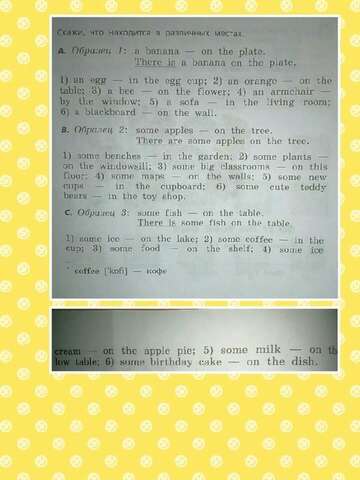 Скажи, что находится в различных местах.
A. Образец 1: a banana — on the plate.
There is a banana on the plate.
1) an egg — in the egg cup; 2) an orange — on the
table; 3) a bee — on the flower; 4) an armchair —
by the window; 5) a sofa — in the living room;
6) a blackboard — on the wall.
B. Образец 2: some apples — on the tree.
There are some apples on the tree.
1) some benches — in the garden; 2) some plants —
on the windowsill; 3) some big classrooms — on this
floor; 4) some maps — on the walls; 5) some new
cups — in the cupboard; 6) some cute teddy
bears — in the toy shop.
C. Образец 3: some fish — on the table.
There is some fish on the table.
1) some ice — on the lake; 2) some coffee — in the
cup; 3) some food — on the shelf; 4) some ice
coffee ['kɒfi] — кофе
cream — on the apple pie; 5) some milk — on th
low table; 6) some birthday cake — on the dish.